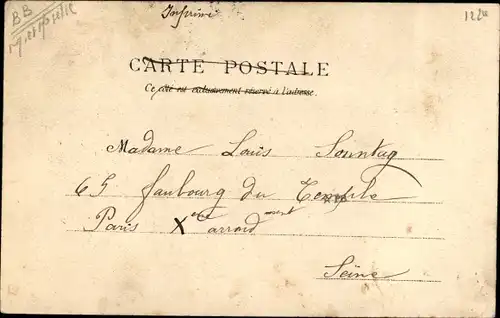 BB
Imprimé
122
CARTE POSTALE
Ce côté est exclusivement réservé à l'adresse.
Madame Louis Sonntag
65 faubourg du Temple
Paris Xème arrondment
Seine